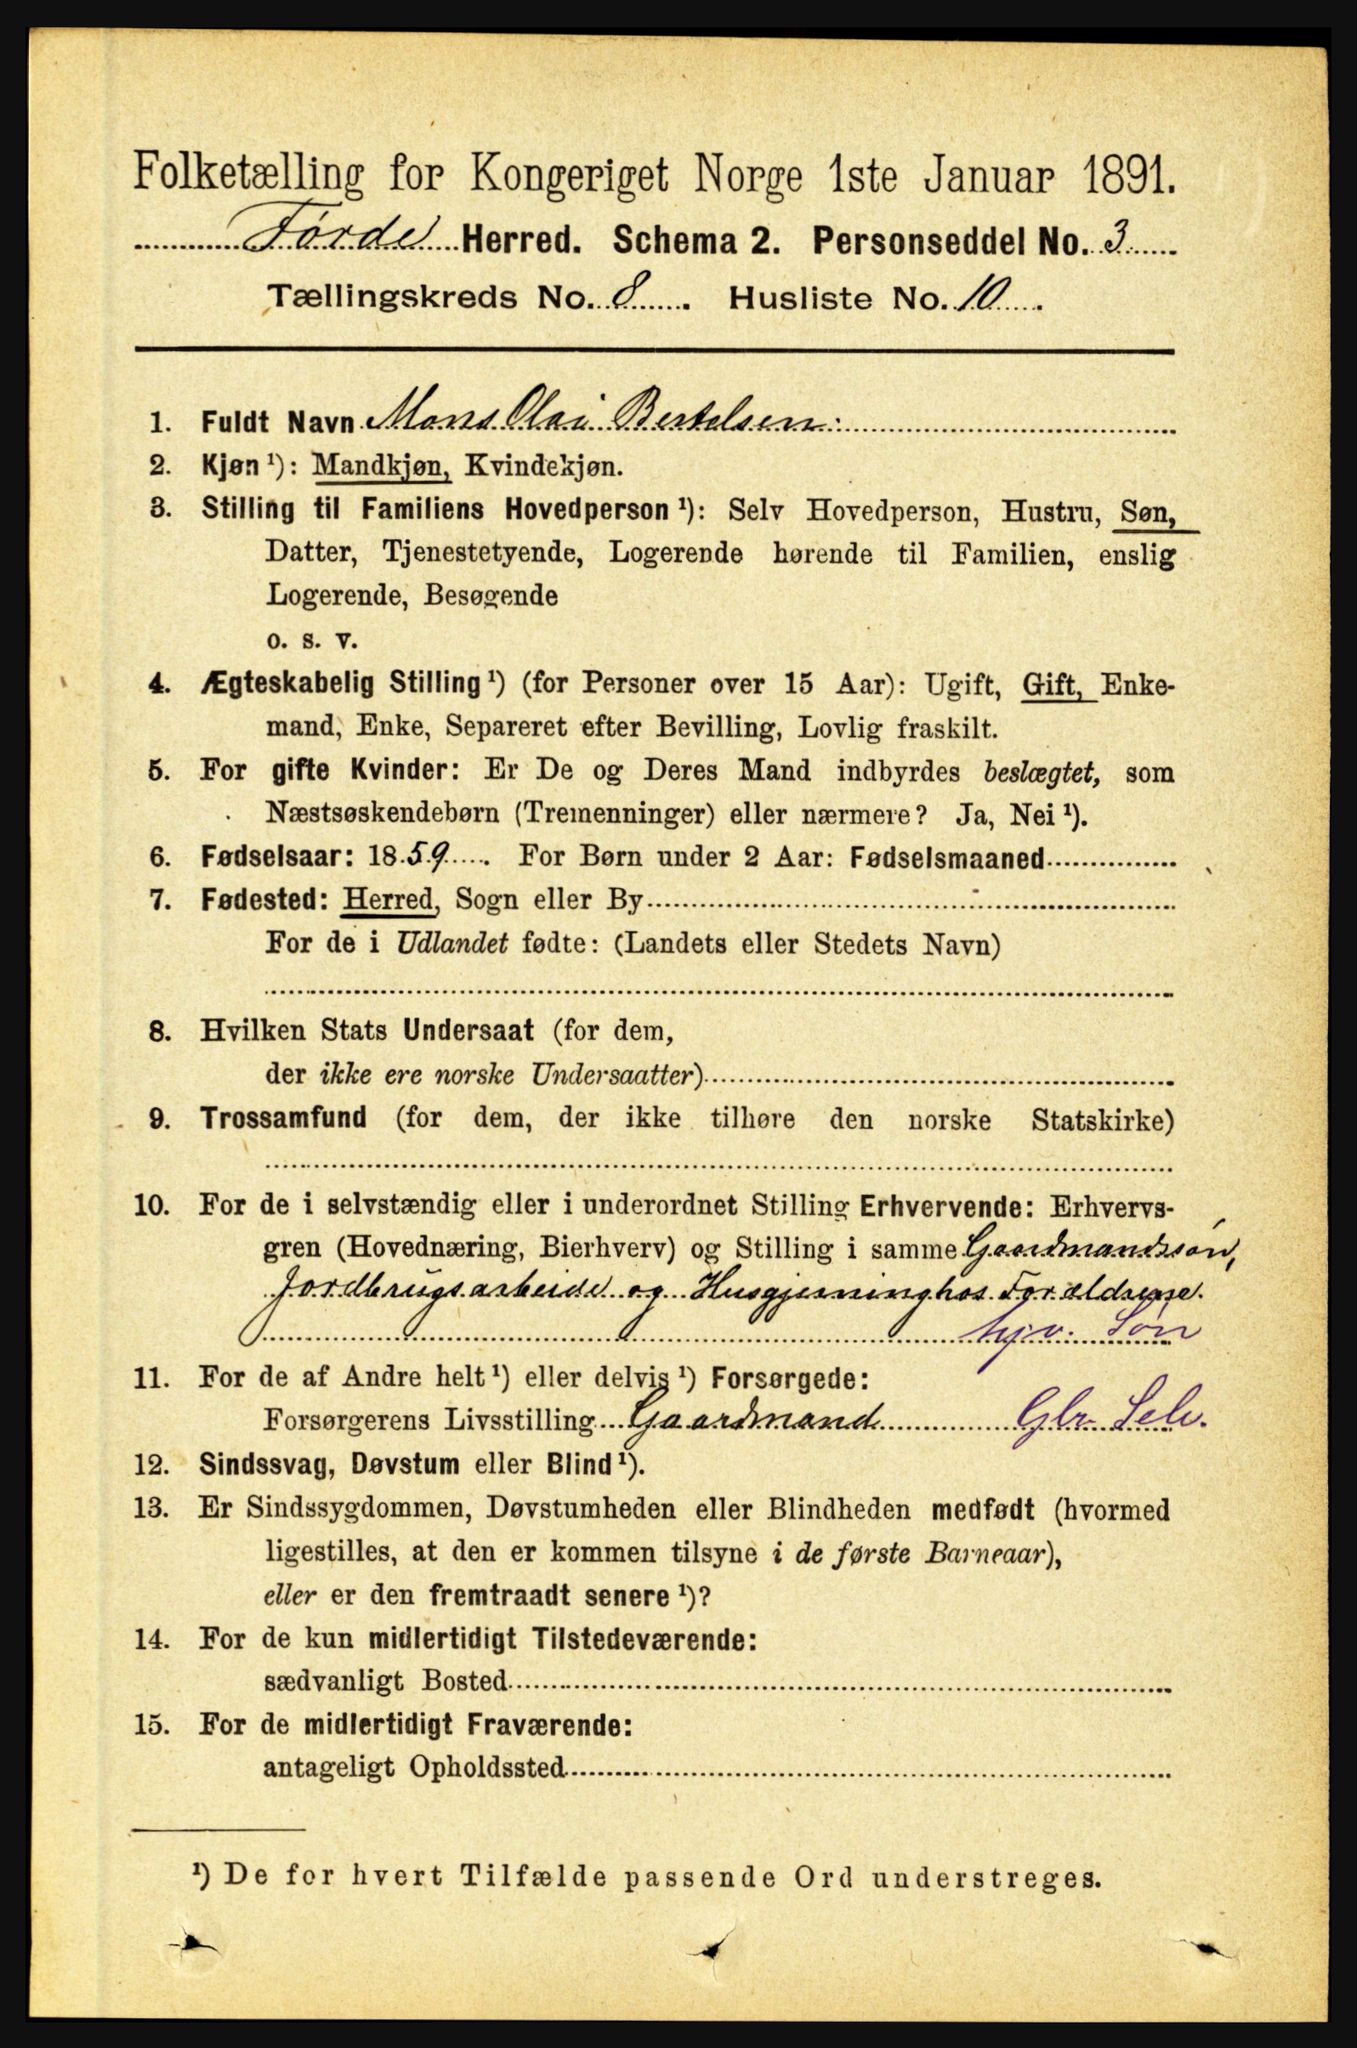 Folketælling for Kongeriget Norge 1ste Januar 1891.
Førde Herred. Schema 2. Personseddel No. 3
Tællingskreds No. 8. Husliste No. 10.
1. Fuldt Navn Mons Olai Bertelsen.
2. Kjøn ¹): Mandkjøn, Kvindekjøn.
3. Stilling til Familiens Hovedperson ¹): Selv Hovedperson, Hustru, Søn,
Datter, Tjenestetyende, Logerende hørende til Familien, enslig
Logerende, Besøgende
o. s. v.
4. Ægteskabelig Stilling ¹) (for Personer over 15 Aar): Ugift, Gift, Enke-
mand, Enke, Separeret efter Bevilling, Lovlig fraskilt.
5. For gifte Kvinder: Er De og Deres Mand indbyrdes beslægtet, som
Næstsøskendebørn (Tremenninger) eller nærmere? Ja, Nei ¹).
6. Fødselsaar: 1859. For Børn under 2 Aar: Fødselsmaaned
7. Fødested: Herred, Sogn eller By
For de i Udlandet fødte: (Landets eller Stedets Navn)
8. Hvilken Stats Undersaat (for dem,
der ikke ere norske Undersaatter)
9. Trossamfund (for dem, der ikke tilhøre den norske Statskirke)
10. For de i selvstændig eller i underordnet Stilling Erhvervende: Erhvervs-
gren (Hovednæring, Bierhverv) og Stilling i samme Gaardmandssøn,
Jordbrugsarbeide og Husgjerning hos Forældrene.
hjv. Søn
11. For de af Andre helt ¹) eller delvis ¹) Forsørgede:
Forsørgerens Livsstilling Gaardmand Gbr Selv.
12. Sindssvag, Døvstum eller Blind ¹).
13. Er Sindssygdommen, Døvstumheden eller Blindheden medfødt (hvormed
ligestilles, at den er kommen tilsyne i de første Barneaar),
eller er den fremtraadt senere ¹)?
14. For de kun midlertidigt Tilstedeværende:
sædvanligt Bosted
15. For de midlertidigt Fraværende:
antageligt Opholdssted
¹) De for hvert Tilfælde passende Ord understreges.